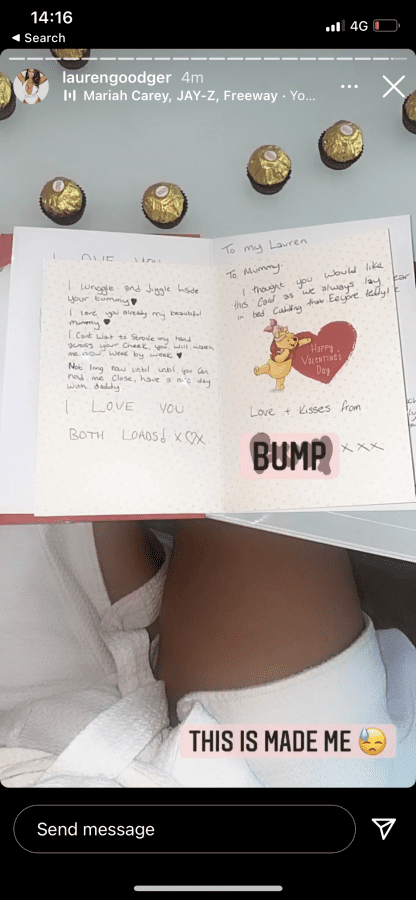 14:16
4G
◀ Search
laurengoodger 4m
Mariah Carey, JAY-Z, Freeway · Yo...
I wriggle and Jiggle inside
your tummy♥
I love you already my beautiful
mummy ♥
I cant wait to stroke my hand
across your cheek, you will watch
me now week by week ♥
Not long now until until you can
hold me close, have a nice day
with daddy.
I LOVE YOU
BOTH LOADS! x♡x
To my Lauren
To Mummy,
I thought you would like
this Card as we always lay
in bed Cuddling that Eeyore teddy!
Happy
Valentines
Day
Love + Kisses from
BUMP xxx
THIS IS MADE ME 😓
Send message